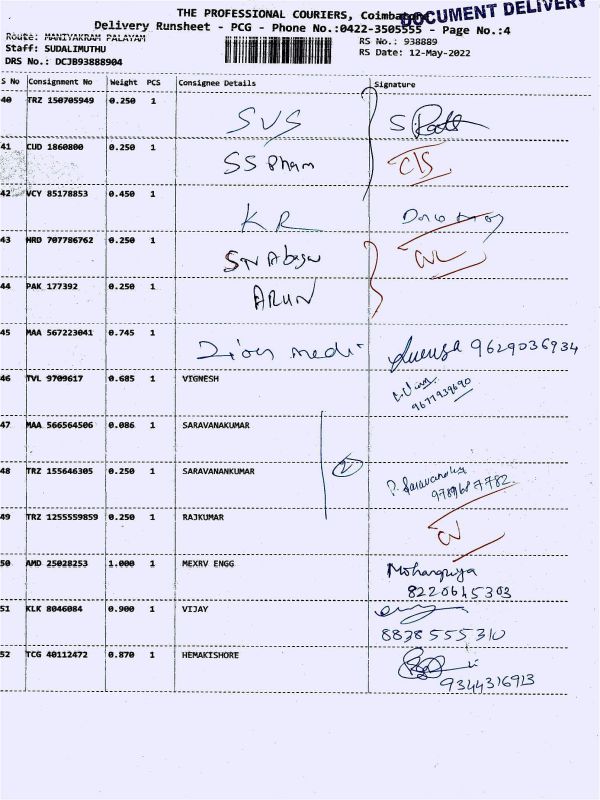 THE PROFESSIONAL COURIERS, Coimbatore
DOCUMENT DELIVERY
Delivery Runsheet - PCG - Phone No.:0422-3505555 - Page No.:4
Route: MANIYAKRAM PALAYAM
RS No.: 938889
Staff: SUDALIMUTHU
RS Date: 12-May-2022
DRS No.: DCJB93888904
S No Consignment No Weight PCS Consignee Details Signature
40 TRZ 150705949 0.250 1
SVS S
41 CUD 1860800 0.250 1
SS Pham
42 VCY 85178853 0.450 1
KR
43 HRD 707786762 0.250 1
SN
44 PAK 177392 0.250 1
ARUN
45 MAA 567223041 0.745 1
Zion medi 9629036934
46 TVL 9709617 0.685 1 VIGNESH
9677939690
47 MAA 566564506 0.086 1 SARAVANAKUMAR
48 TRZ 155646305 0.250 1 SARAVANANKUMAR
2
P. Saravanaku
49 TRZ 1255559859 0.250 1 RAJKUMAR
50 AMD 25028253 1.000 1 MEXRV ENGG
Mohanpriya
8220615303
51 KLK 8046084 0.900 1 VIJAY
8838555310
52 TCG 40112472 0.870 1 HEMAKISHORE
9344316913